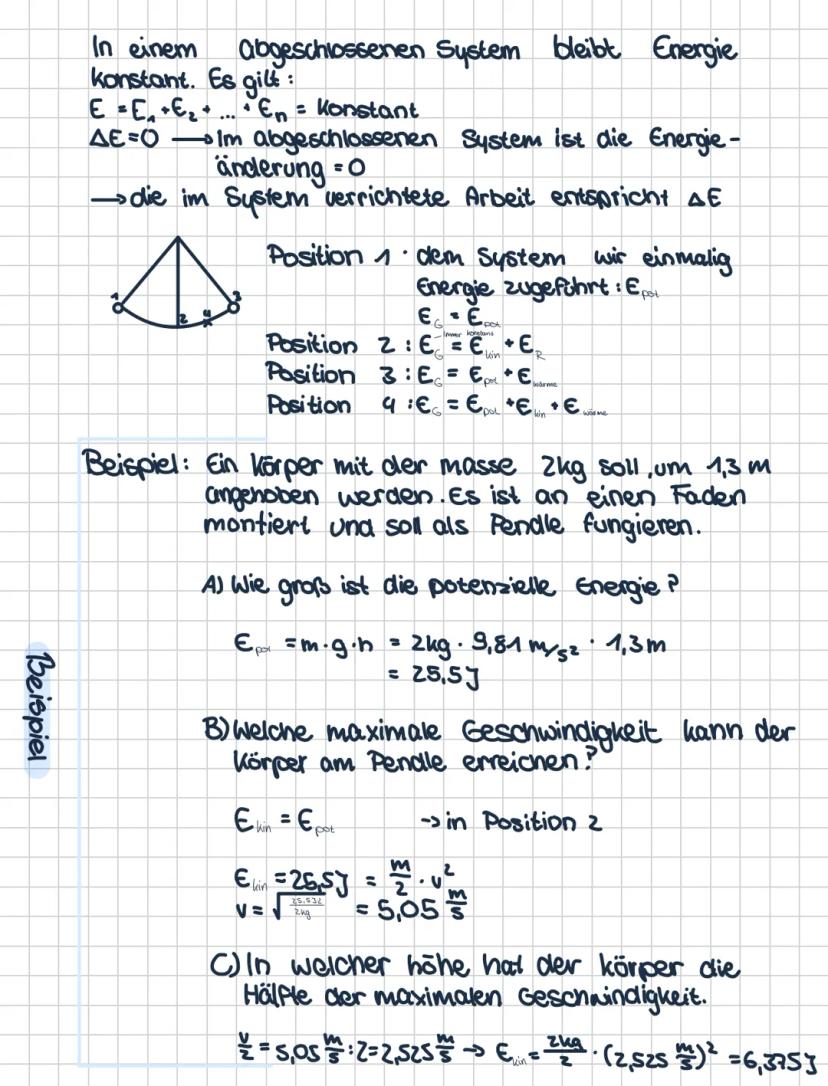 In einem abgeschlossenen System bleibt Energie
konstant. Es gilt:
E = E₁ + E₂ + ... + Eₙ = Konstant
ΔE=0 → Im abgeschlossenen System ist die Energie-
änderung = 0
→ die im System verrichtete Arbeit entspricht ΔE
1 2 4 3
Position 1 : dem System wir einmalig
Energie zugeführt : E pot
E G = E pot
Immer konstant
Position 2 : E G = E kin + E R
Position 3 : E G = E pot + E Wärme
Position 4 : E G = E pot + E kin + E wärme
Beispiel: Ein Körper mit der masse 2kg soll um 1,3 m
angehoben werden. Es ist an einen Faden
montiert und soll als Pendle fungieren.
A) Wie groß ist die potenzielle Energie?
E pot = m·g·h = 2kg · 9,81 m/s² · 1,3m
= 25,5J
Beispiel
B) Welche maximale Geschwindigkeit kann der
Körper am Pendle erreichen?
E kin = E pot -> in Position 2
E kin = 25,5J = m/2 · v²
v = √ 2kg = 5,05 m/s
C) In welcher höhe hat der körper die
Hälfte der maximalen Geschwindigkeit.
v/2 = 5,05 m/s : 2 = 2,525 m/s → E kin = 2kg/2 · (2,525 m/s)² = 6,375J